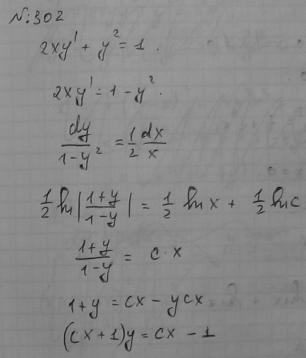 N:302
2xy' + y² = 1.
2xy' = 1 - y².
dy/(1-y²) = 1/2 dx/x
1/2 ln|(1+y)/(1-y)| = 1/2 ln x + 1/2 ln c
(1+y)/(1-y) = c·x
1+y = cx - ycx
(cx+1)y = cx - 1